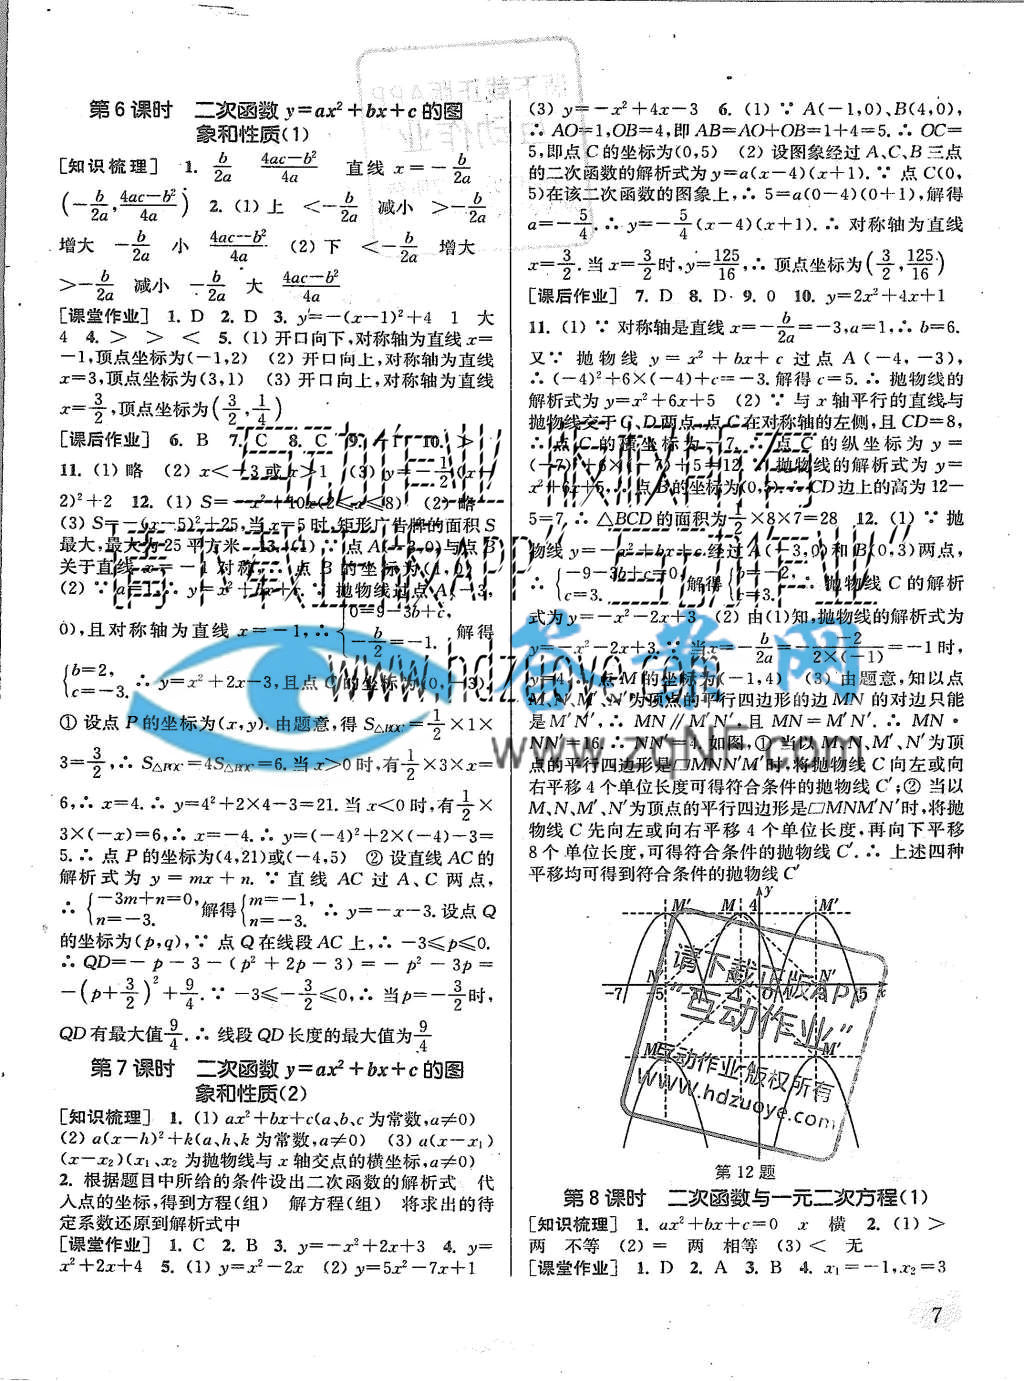 第6课时 二次函数 y=ax²+bx+c 的图
象和性质(1)
[知识梳理] 1. b/2a (4ac-b²)/4a 直线 x=-b/2a
(-b/2a, (4ac-b²)/4a) 2. (1) 上 <-b/2a 减小 >-b/2a
增大 -b/2a 小 (4ac-b²)/4a (2) 下 <-b/2a 增大
>-b/2a 减小 -b/2a 大 (4ac-b²)/4a
[课堂作业] 1. D 2. D 3. y=-(x-1)²+4 1 大
4 4. > > < 5. (1) 开口向下,对称轴为直线x=
-1,顶点坐标为(-1,2) (2) 开口向上,对称轴为直线
x=3,顶点坐标为(3,1) (3) 开口向上,对称轴为直线
x=3/2,顶点坐标为(3/2,1/4)
[课后作业] 6. B 7. C 8. C 9. 10. >
11. (1) 略 (2) x<-3或x>1 (3) y=-1/2(x-
2)²+2 12. (1) S=-x²+10x(2≤x≤8) (2) 略
(3) S=-(x-5)²+25,当x=5时,矩形广告牌的面积S
最大,最大为25平方米 13. (1) ∵ 点A(-3,0)与点B
关于直线x=-1对称,∴ 点B的坐标为(1,0)
(2) ∵ a=1,∴ y=x²+bx+c.∵ 抛物线过点A(-3,
0),且对称轴为直线 x=-1,∴ {0=9-3b+c, -b/2=-1. 解得
{b=2, c=-3. ∴ y=x²+2x-3,且点C的坐标为(0,-3)
① 设点P的坐标为(x,y).由题意,得S△BOC=1/2×1×
3=3/2,∴ S△POC=4S△BOC=6.当x>0时,有1/2×3×x=
6,∴ x=4.∴ y=4²+2×4-3=21.当x<0时,有1/2×
3×(-x)=6,∴ x=-4.∴ y=(-4)²+2×(-4)-3=
5.∴ 点P的坐标为(4,21)或(-4,5) ② 设直线AC的
解析式为 y=mx+n.∵ 直线 AC 过 A、C 两点,
∴ {-3m+n=0, n=-3. 解得{m=-1, n=-3. ∴ y=-x-3.设点Q
的坐标为(p,q),∵ 点Q在线段AC上,∴ -3≤p≤0.
∴ QD=-p-3-(p²+2p-3)=-p²-3p=
-(p+3/2)²+9/4.∵ -3≤-3/2≤0,∴ 当p=-3/2时,
QD有最大值9/4.∴ 线段QD长度的最大值为9/4
第7课时 二次函数 y=ax²+bx+c 的图
象和性质(2)
[知识梳理] 1. (1) ax²+bx+c(a、b、c为常数,a≠0)
(2) a(x-h)²+k(a、h、k为常数,a≠0) (3) a(x-x₁)
(x-x₂)(x₁、x₂为抛物线与x轴交点的横坐标,a≠0)
2. 根据题目中所给的条件设出二次函数的解析式 代
入点的坐标,得到方程(组) 解方程(组) 将求出的待
定系数还原到解析式中
[课堂作业] 1. C 2. B 3. y=-x²+2x+3 4. y=
x²+2x+4 5. (1) y=x²-2x (2) y=5x²-7x+1
(3) y=-x²+4x-3 6. (1) ∵ A(-1,0)、B(4,0),
∴ AO=1,OB=4,即AB=AO+OB=1+4=5.∴ OC=
5,即点C的坐标为(0,5) (2) 设图象经过A、C、B三点
的二次函数的解析式为y=a(x-4)(x+1).∵ 点C(0,
5)在该二次函数的图象上,∴ 5=a(0-4)(0+1),解得
a=-5/4.∴ y=-5/4(x-4)(x+1).∴ 对称轴为直线
x=3/2.当x=3/2时,y=125/16,∴ 顶点坐标为(3/2,125/16)
[课后作业] 7. D 8. D 9. 0 10. y=2x²+4x+1
11. (1) ∵ 对称轴是直线x=-b/2a=-3,a=1,∴ b=6.
又∵ 抛物线 y=x²+bx+c 过点 A(-4,-3),
∴ (-4)²+6×(-4)+c=-3.解得c=5.∴ 抛物线的
解析式为y=x²+6x+5 (2) ∵ 与x轴平行的直线与
抛物线交于C、D两点,点C在对称轴的左侧,且CD=8,
∴ 点C的横坐标为-7.∴ 点C的纵坐标为 y=
(-7)²+6×(-7)+5=12.∵ 抛物线的解析式为 y=
x²+6x+5,∴ 点B的坐标为(0,5).∴ CD边上的高为12-
5=7.∴ △BCD的面积为1/2×8×7=28 12. (1) ∵ 抛
物线y=-x²+bx+c经过A(-3,0)和B(0,3)两点,
∴ {-9-3b+c=0, c=3. 解得{b=-2, c=3. ∴ 抛物线C的解析
式为y=-x²-2x+3 (2) 由(1)知,抛物线的解析式为
y=-x²-2x+3.∴ 当x=-b/2a=-(-2)/(2×(-1))=-1时,
y=4.∴ 点M的坐标为(-1,4) (3) 由题意,知以点
M、N、M′、N′为顶点的平行四边形的边MN的对边只能
是M′N′,∴ MN∥M′N′,且MN=M′N′.∴ MN·
NN′=16.∴ NN′=4.如图,① 当以M、N、M′、N′为顶
点的平行四边形是□MNN′M′时,将抛物线C向左或向
右平移4个单位长度可得符合条件的抛物线C′;② 当以
M、N、M′、N′为顶点的平行四边形是□MNM′N′时,将抛
物线C先向左或向右平移4个单位长度,再向下平移
8个单位长度,可得符合条件的抛物线C′.∴ 上述四种
平移均可得到符合条件的抛物线C′
第12题
第8课时 二次函数与一元二次方程(1)
[知识梳理] 1. ax²+bx+c=0 x 横 2. (1) >
两 不等 (2) = 两 相等 (3) < 无
[课堂作业] 1. D 2. A 3. B 4. x₁=-1,x₂=3
7
请下载正版APP
"互动作业"
互动作业 版权所有
www.hdzuoye.com